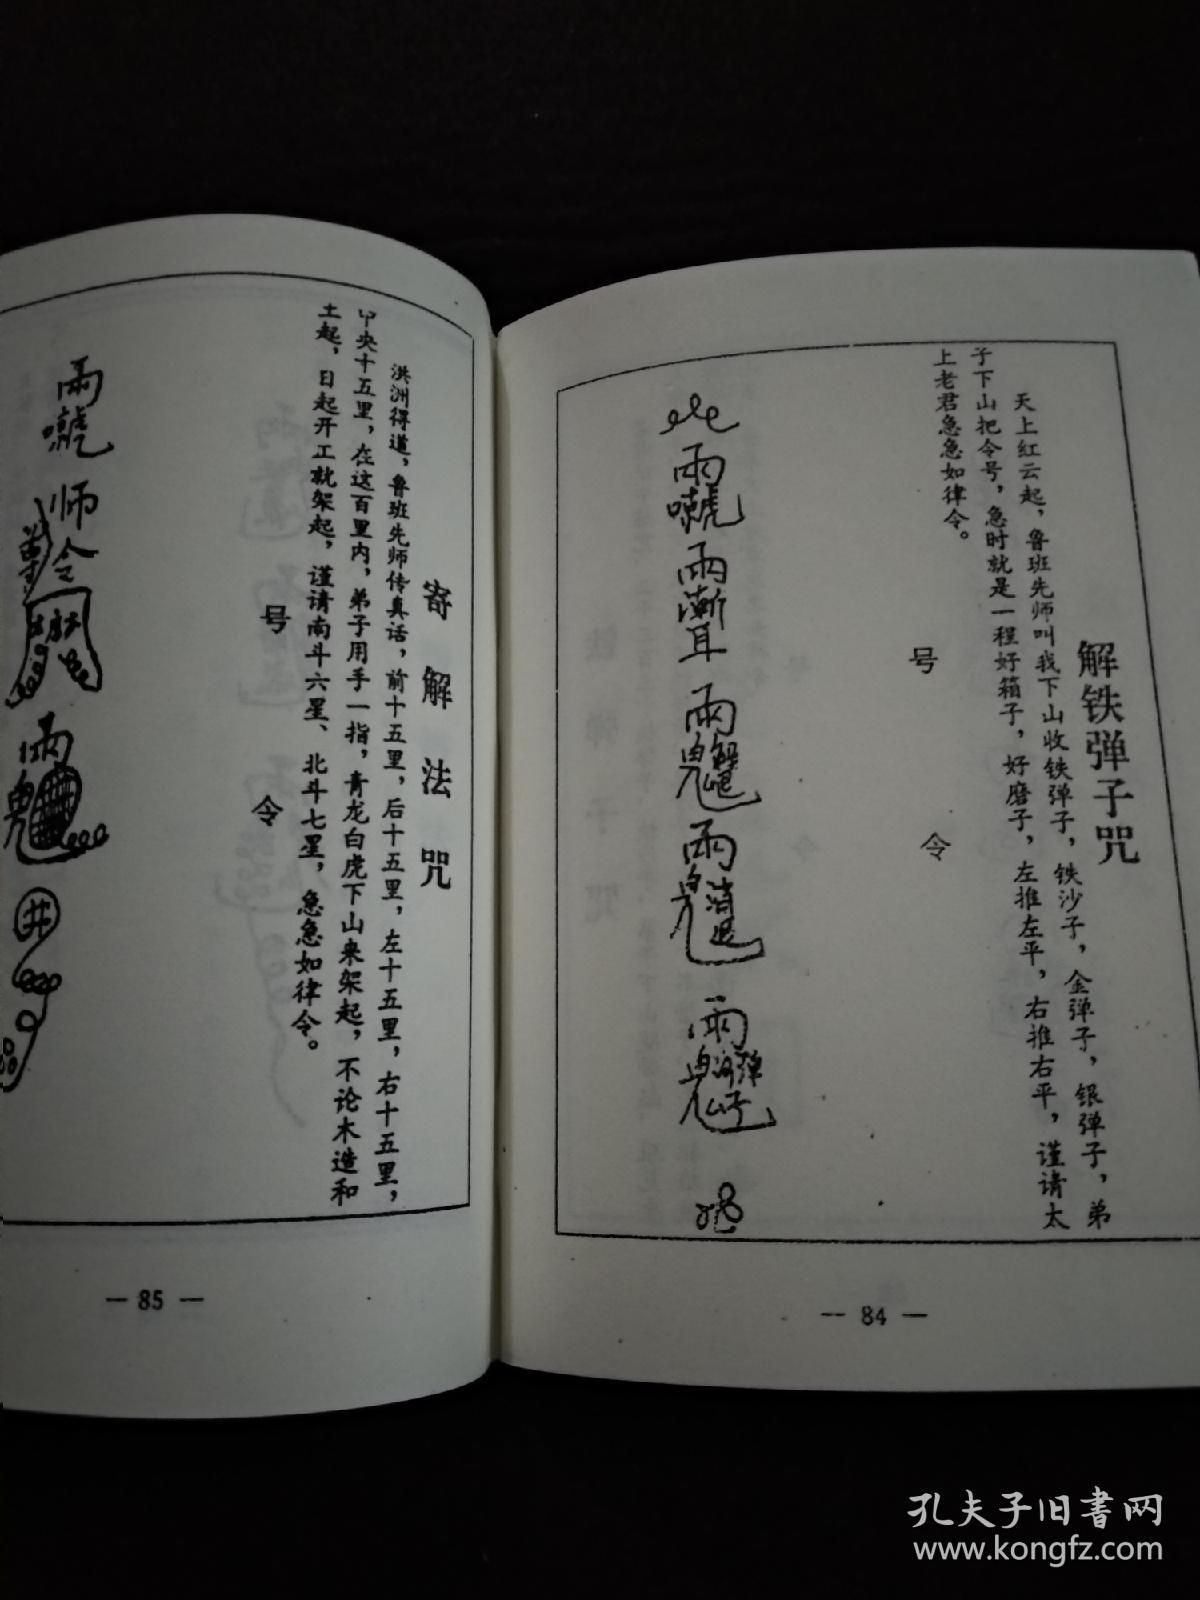 解铁弹子咒
天上红云起，鲁班先师叫我下山收铁弹子，铁沙子，金弹子，银弹子，弟
子下山把令号，急时就是一程好箱子，好磨子，左推左平，右推右平，谨请太
上老君急急如律令。
号
令
— 84 —
寄解法咒
洪洲得道，鲁班先师传真话，前十五里，后十五里，左十五里，右十五里，
中央十五里，在这百里内，弟子用手一指，青龙白虎下山来架起，不论木造和
土起，日起开工就架起，谨请南斗六星、北斗七星，急急如律令。
号
令
师令
— 85 —
孔夫子旧书网
www.kongfz.com